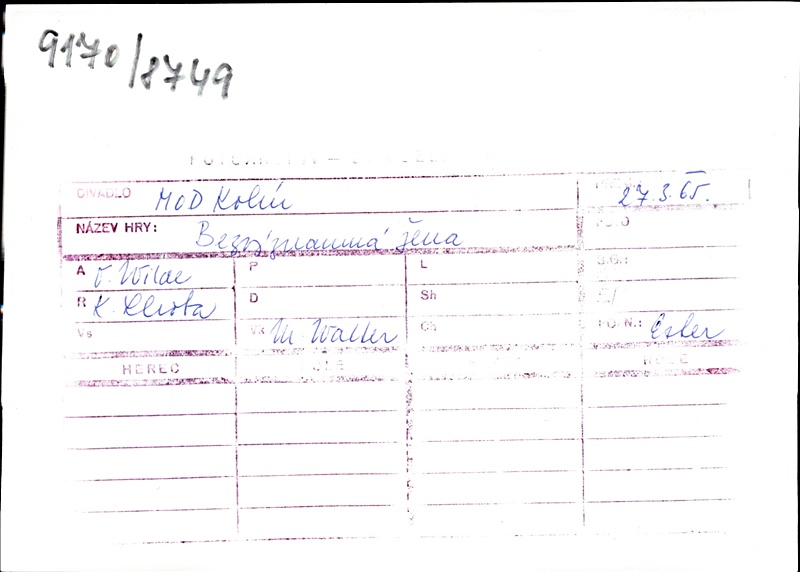 9170/8749
DIVADLO MOD Kolín 27.3.65.
NÁZEV HRY: Bezvýznamná žena
A O. Wilde P L
R K. D Sh
Vs Vk M. Walter Ch POZN.: Ester
HEREC